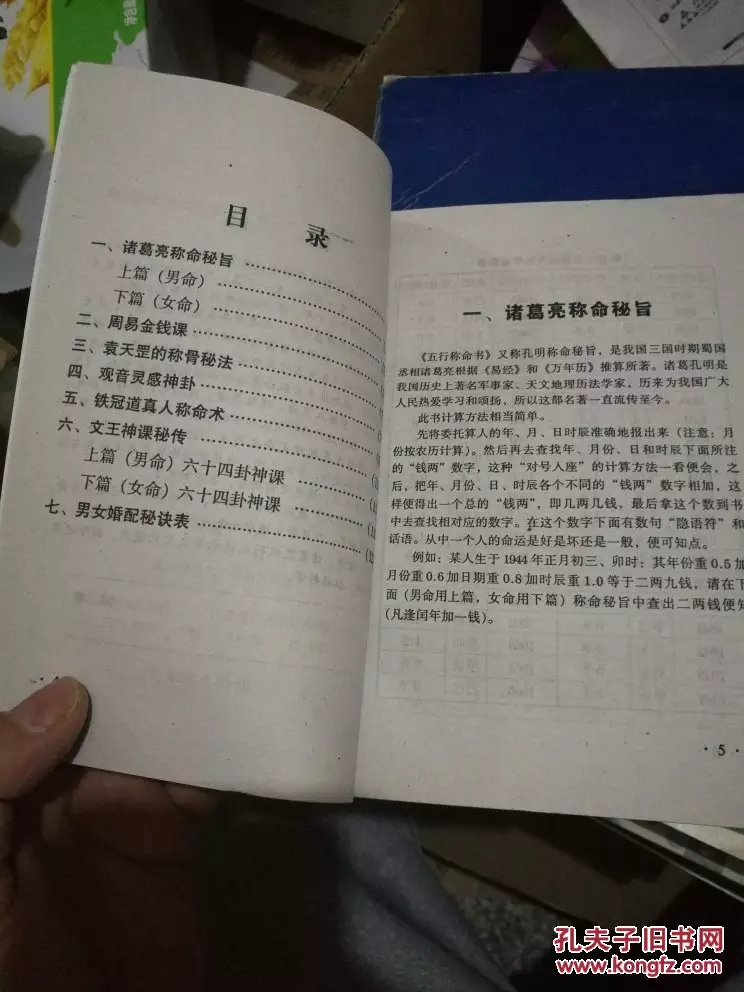 净含量
目 录
一、诸葛亮称命秘旨
上篇（男命）
下篇（女命）
二、周易金钱课
三、袁天罡的称骨秘法
四、观音灵感神卦
五、铁冠道真人称命术
六、文王神课秘传
上篇（男命）六十四卦神课
下篇（女命）六十四卦神课
七、男女婚配秘诀表
一、诸葛亮称命秘旨
《五行称命书》又称孔明称命秘旨，是我国三国时期蜀国
丞相诸葛亮根据《易经》和《万年历》推算所著。诸葛孔明是
我国历史上著名军事家、天文地理历法学家，历来为我国广大
人民热爱学习和颂扬，所以这部名著一直流传至今。
此书计算方法相当简单。
先将委托算人的年、月、日时辰准确地报出来（注意：月
份按农历计算）。然后再去查找年、月份、日和时辰下面所注
的“钱两”数字，这种“对号入座”的计算方法一看便会，之
后，把年、月份、日、时辰各个不同的“钱两”数字相加，这
样便得出一个总的“钱两”，即几两几钱，最后拿这个数到书
中去查找相对应的数字。在这个数字下面有数句“隐语符”和
话语。从中一个人的命运是好是坏还是一般，便可知点。
例如：某人生于1944年正月初三、卯时：其年份重0.5加
月份重0.6加日期重0.8加时辰重1.0等于二两九钱，请在下
面（男命用上篇，女命用下篇）称命秘旨中查出二两钱便知
(凡逢闰年加一钱)。
·5·
孔夫子旧书网
www.kongfz.com